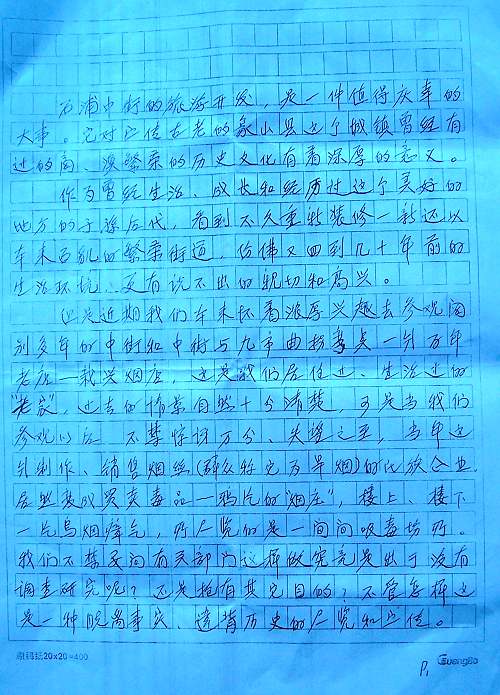 石浦中街的旅游开发，是一件值得庆幸的
大事。它对宣传古老的象山县这个城镇曾经有
过的商、渔繁荣的历史文化有着深厚的意义。
作为曾经生活、成长和经历过这个美好的
地方的子孙后代，看到不久重新装修一新还以
车来百乱的繁荣街道，仿佛又回到几十年前的
生活环境，更有说不出的亲切和高兴。
但是近期我们车来怀着浓厚兴趣去参观阔
别多年的中街和中街与九市曲拐弯点一外百年
老店—栽兴烟店，这是我们居住过、生活过的
"老家"，过去的情景自然十分清楚，可是当我们
参观以后，不禁惊讶万分、失望之至，当年这
外制作、销售烟丝(群众称它为旱烟)的民族企业
居然变成买卖毒品—鸦片的"烟店"，楼上、楼下
一片乌烟瘴气，所展览的是一间间吸毒场所。
我们不禁要问有关部门这样做究竟是出于没有
调查研究呢？还是抱有其它目的？不管怎样这
是一种脱离事实、违背历史的展览和宣传。
20x20=400
GuangBo
P1